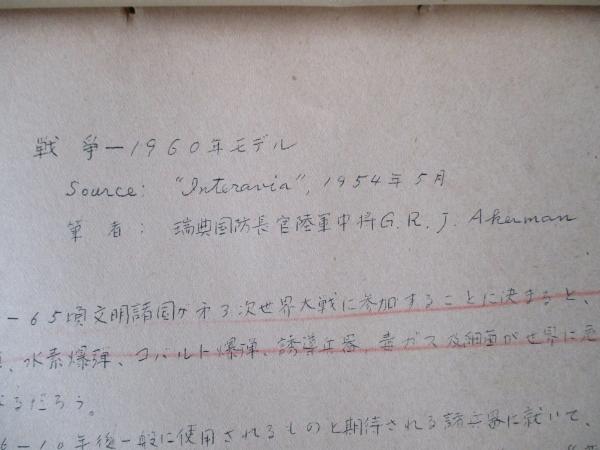 戦争—1960年モデル
Source: "Interavia", 1954年5月
筆者: 瑞典国防長官陸軍中将G. R. J. Akerman
-65頃文明諸国が第3次世界大戦に参加することに決まると、
、水素爆弾、コバルト爆弾、誘導兵器、毒ガス及細菌が世界に
るだろう。
-10年後一般に使用されるものと期待される諸兵器に就いて、